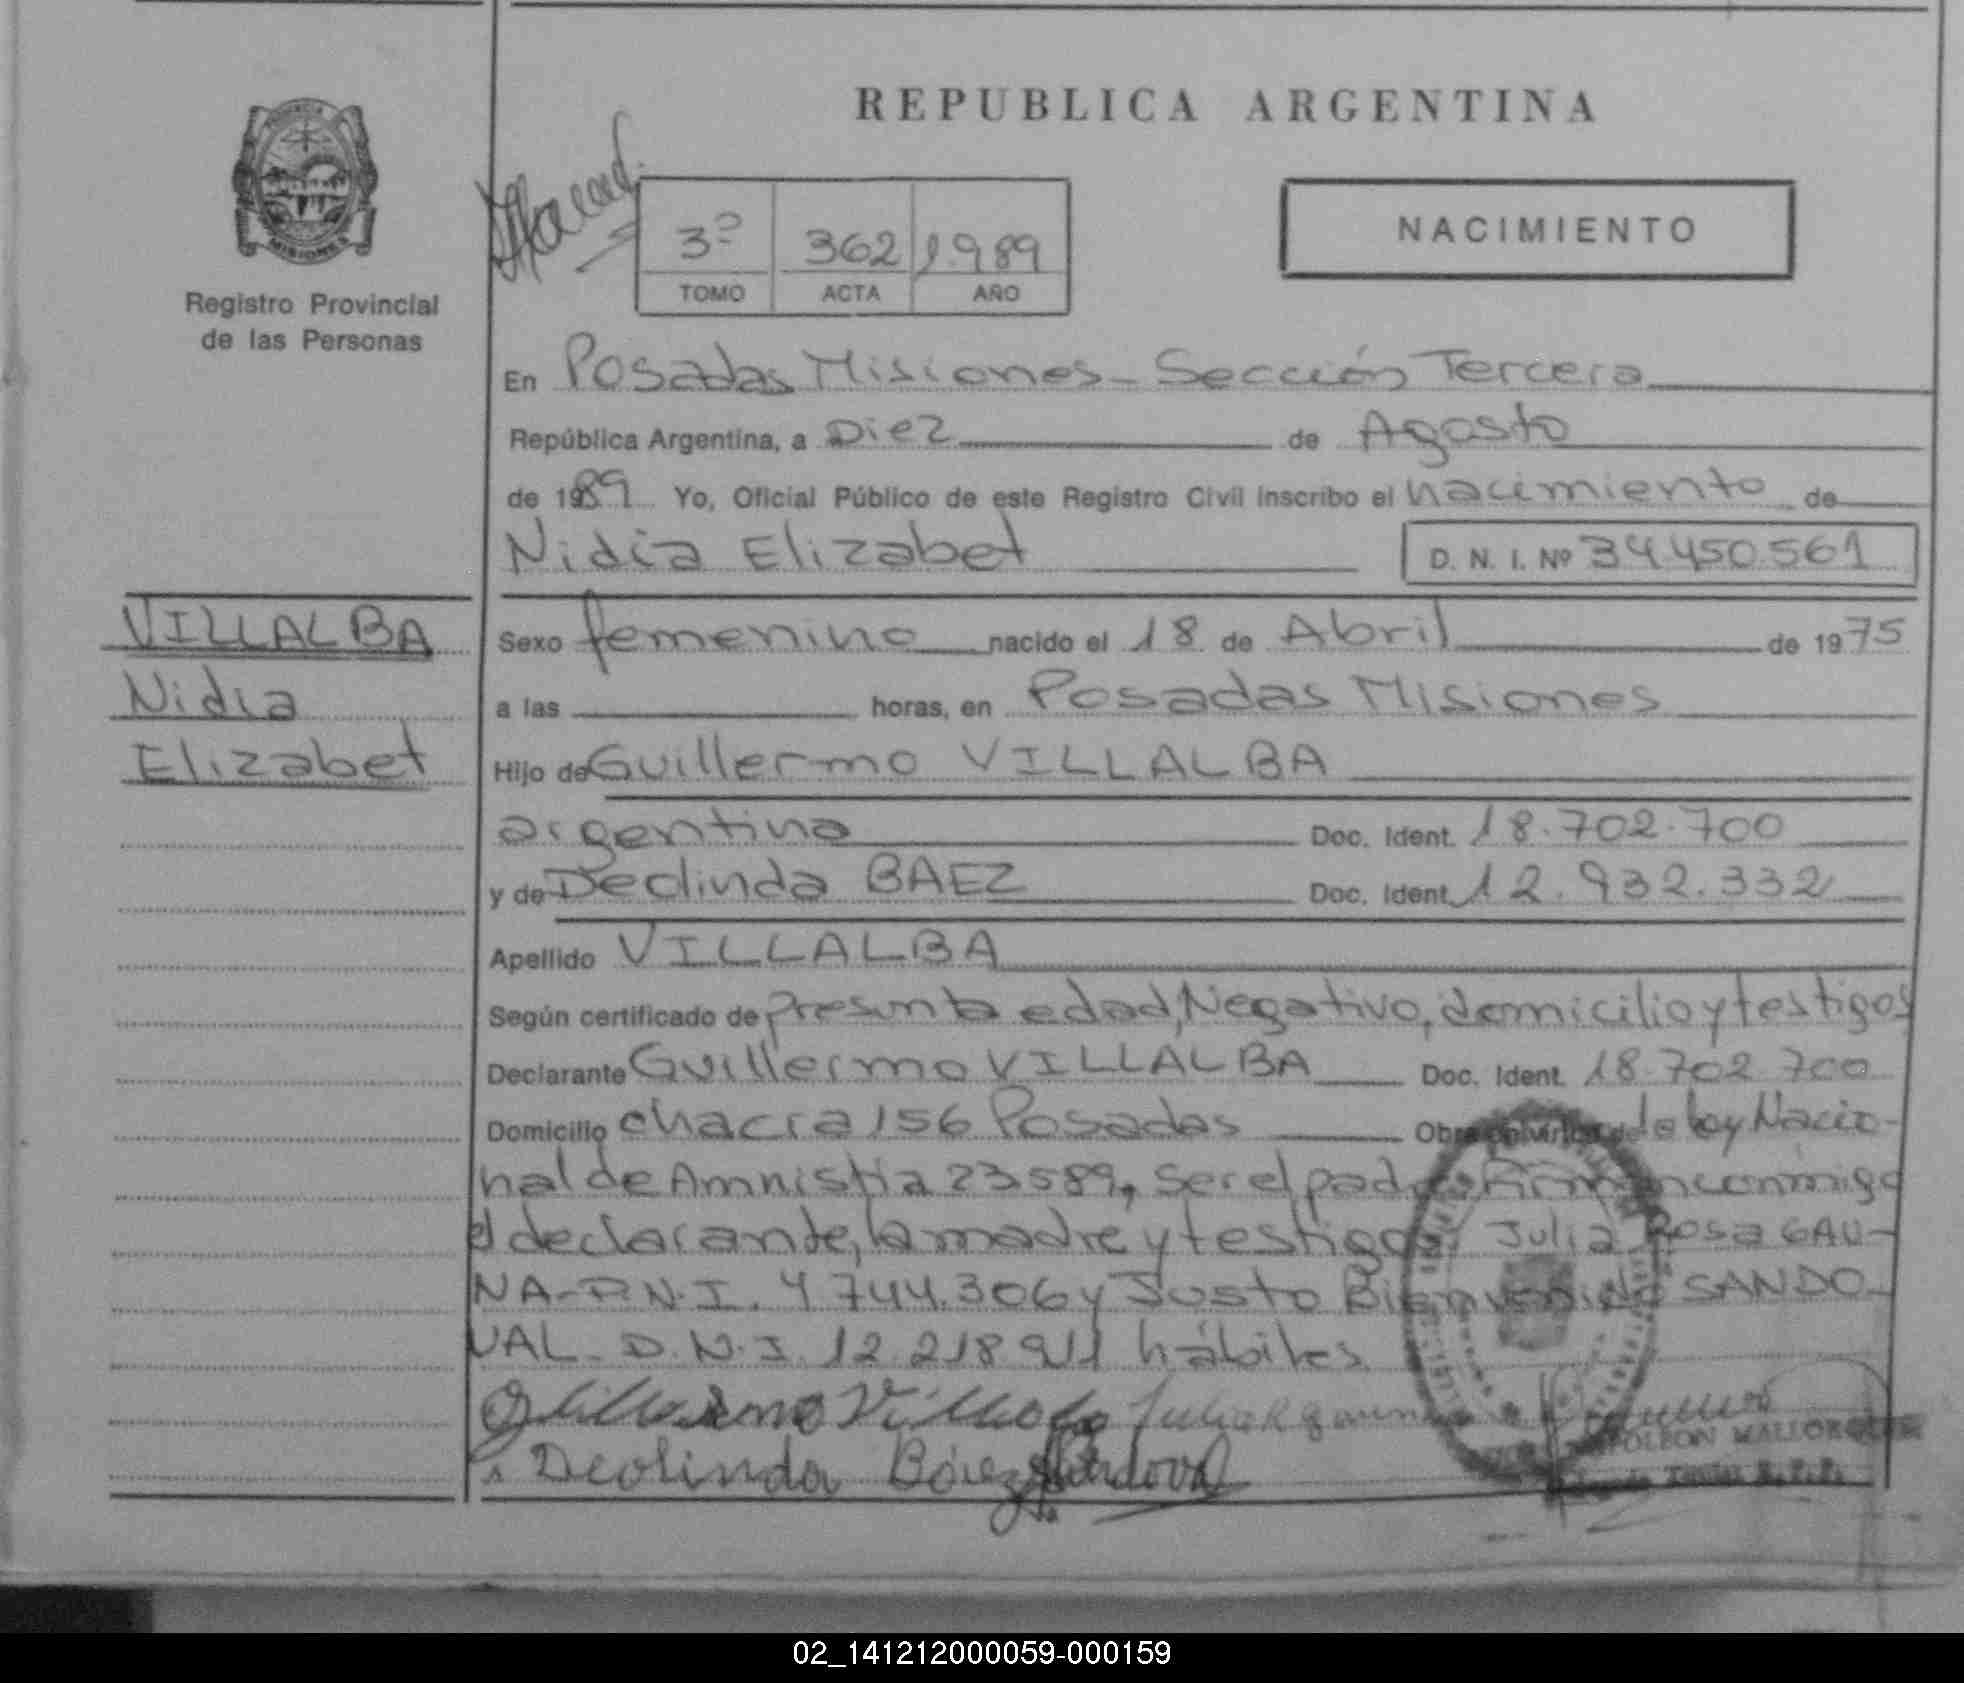 REPUBLICA ARGENTINA
MISIONES
Registro Provincial
de las Personas
3º 362 1.989
TOMO ACTA AÑO
NACIMIENTO
En Posadas Misiones - Sección Tercera
República Argentina, a Diez de Agosto
de 1989 Yo, Oficial Público de este Registro Civil inscribo el nacimiento de
Nidia Elizabet D. N. I. Nº 34.450.561
VILLALBA
Nidia
Elizabet
Sexo femenino nacido el 18 de Abril de 1975
a las horas, en Posadas Misiones
Hijo de Guillermo VILLALBA
argentina Doc. Ident. 18.702.700
y de Deolinda BAEZ Doc. Ident. 12.932.332
Apellido VILLALBA
Según certificado de presunta edad, Negativo, domicilio y testigos
Declarante Guillermo VILLALBA Doc. Ident. 18.702.700
Domicilio chacra 156 Posadas Obra en virtud de la ley Nacio-
nal de Amnistia 23589, ser el padre. Firman conmigo
el declarante, la madre y testigos Julia Rosa GAU-
NA - D.N.I. 4.744.306 y Justo Bienvenido SANDO-
VAL - D.N.I. 12.218.911 hábiles
Guillermo Villalba Julia R Gauna
Deolinda Báez Sandoval
02_141212000059-000159